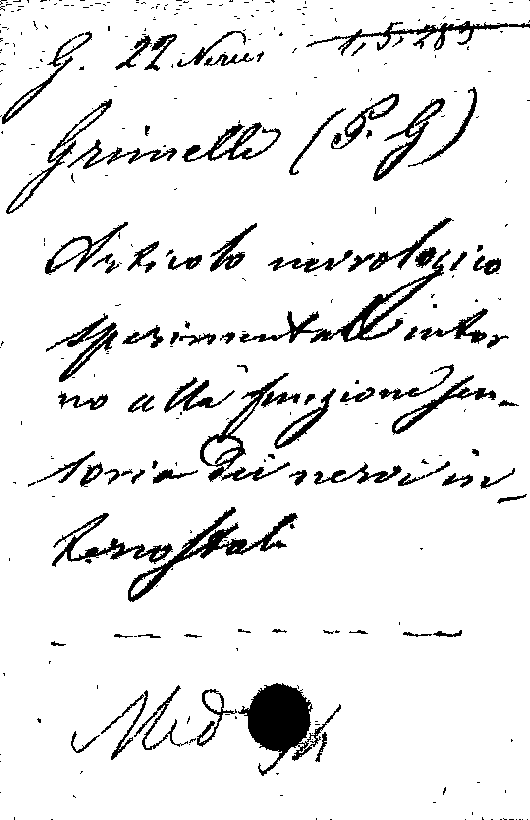 G. 22 Nervi 1, 5, 283
Grimelli (P. G)
Articolo nevrologico
sperimentale intor
no alla funzione sen-
soria dei nervi in-
tercostali
Med